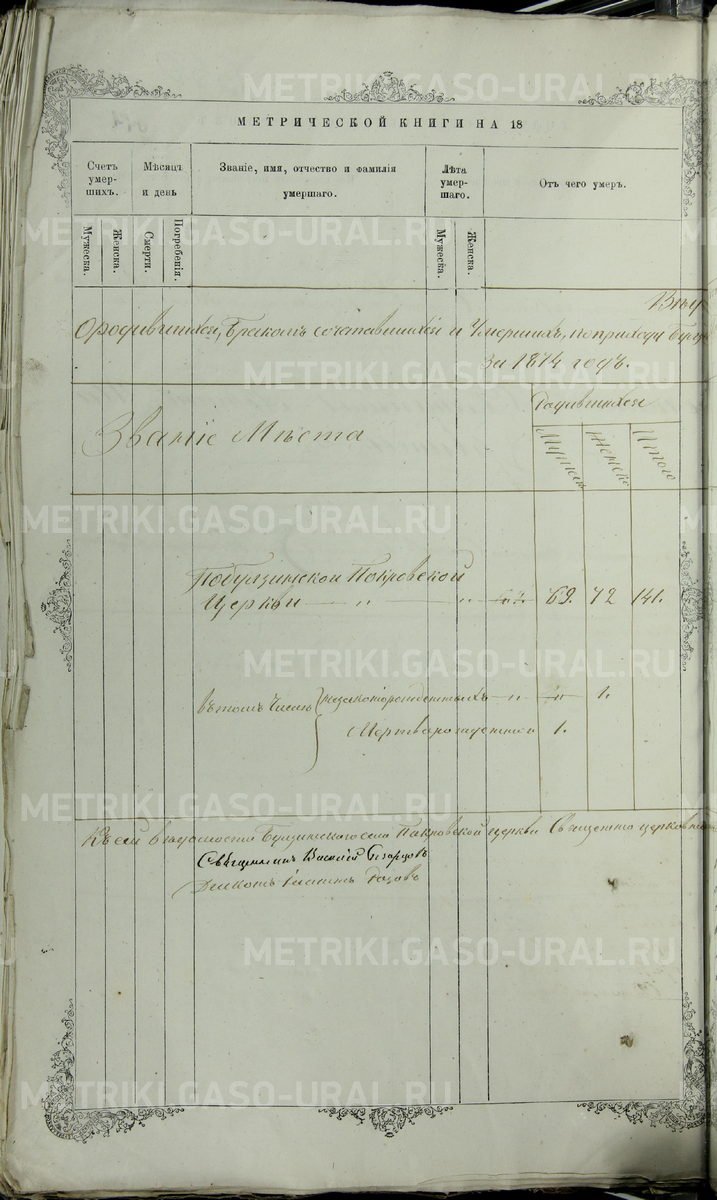 МЕТРИЧЕСКОЙ КНИГИ НА 18
Счетъ умер-шихъ.
Мѣсяцъ и день
Званіе, имя, отчество и фамилія умершаго.
Лѣта умер-шаго.
Отъ чего умеръ.
Мужеска.
Женска.
Смерти.
Погребенія.
Мужеска.
Женска.
Вѣд
О родившихся, бракомъ сочетавшихся и умершихъ, по приходу
за 1874 годъ.
Званіе Мѣста
Родившихся
Мужеска
Женска
Итого
Покровской
Церкви — „ — „ 69. 72 141.
въ томъ числѣ незаконорожденныхъ — „ 1.
Мертворожденной 1.
Къ сей вѣдомости села Покровской церкви Священно церковно
Священникъ Василій
METRIKI.GASO-URAL.RU